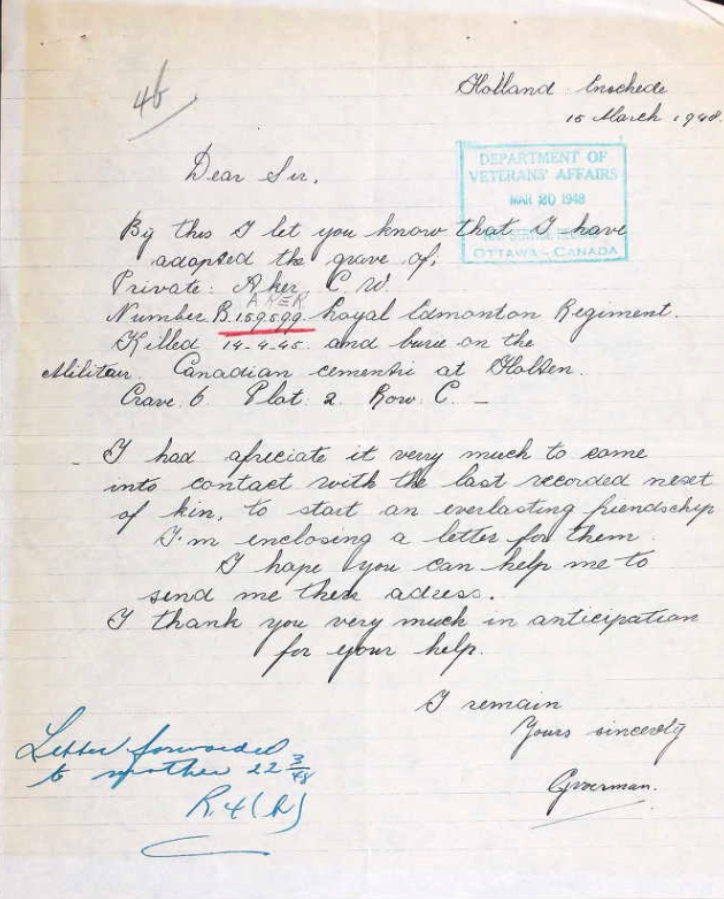 46
Holland Enschede
15 March 1948.
Dear Sir.
DEPARTMENT OF
VETERANS' AFFAIRS
MAR 20 1948
OTTAWA - CANADA
By this I let you know that I have
adopted the grave of;
Private: Aker C. W.
AKER
Number B.159599. Royal Edmonton Regiment.
Killed 14-4-45. and burie on the
Militair. Canadian cementri at Holten.
Crave. 6. Plat. 2. Row. C. _
I had apreciate it verry much to come
into contact with the last recorded nexst
of kin, to start an everlasting friendschip
I'm enclosing a letter for them.
I hope you can help me to
send me their adress.
I thank you very much in anticipation
for your help.
I remain
Yours sincerely
Letter forwarded
to mother 22 3/48
R.4(h)